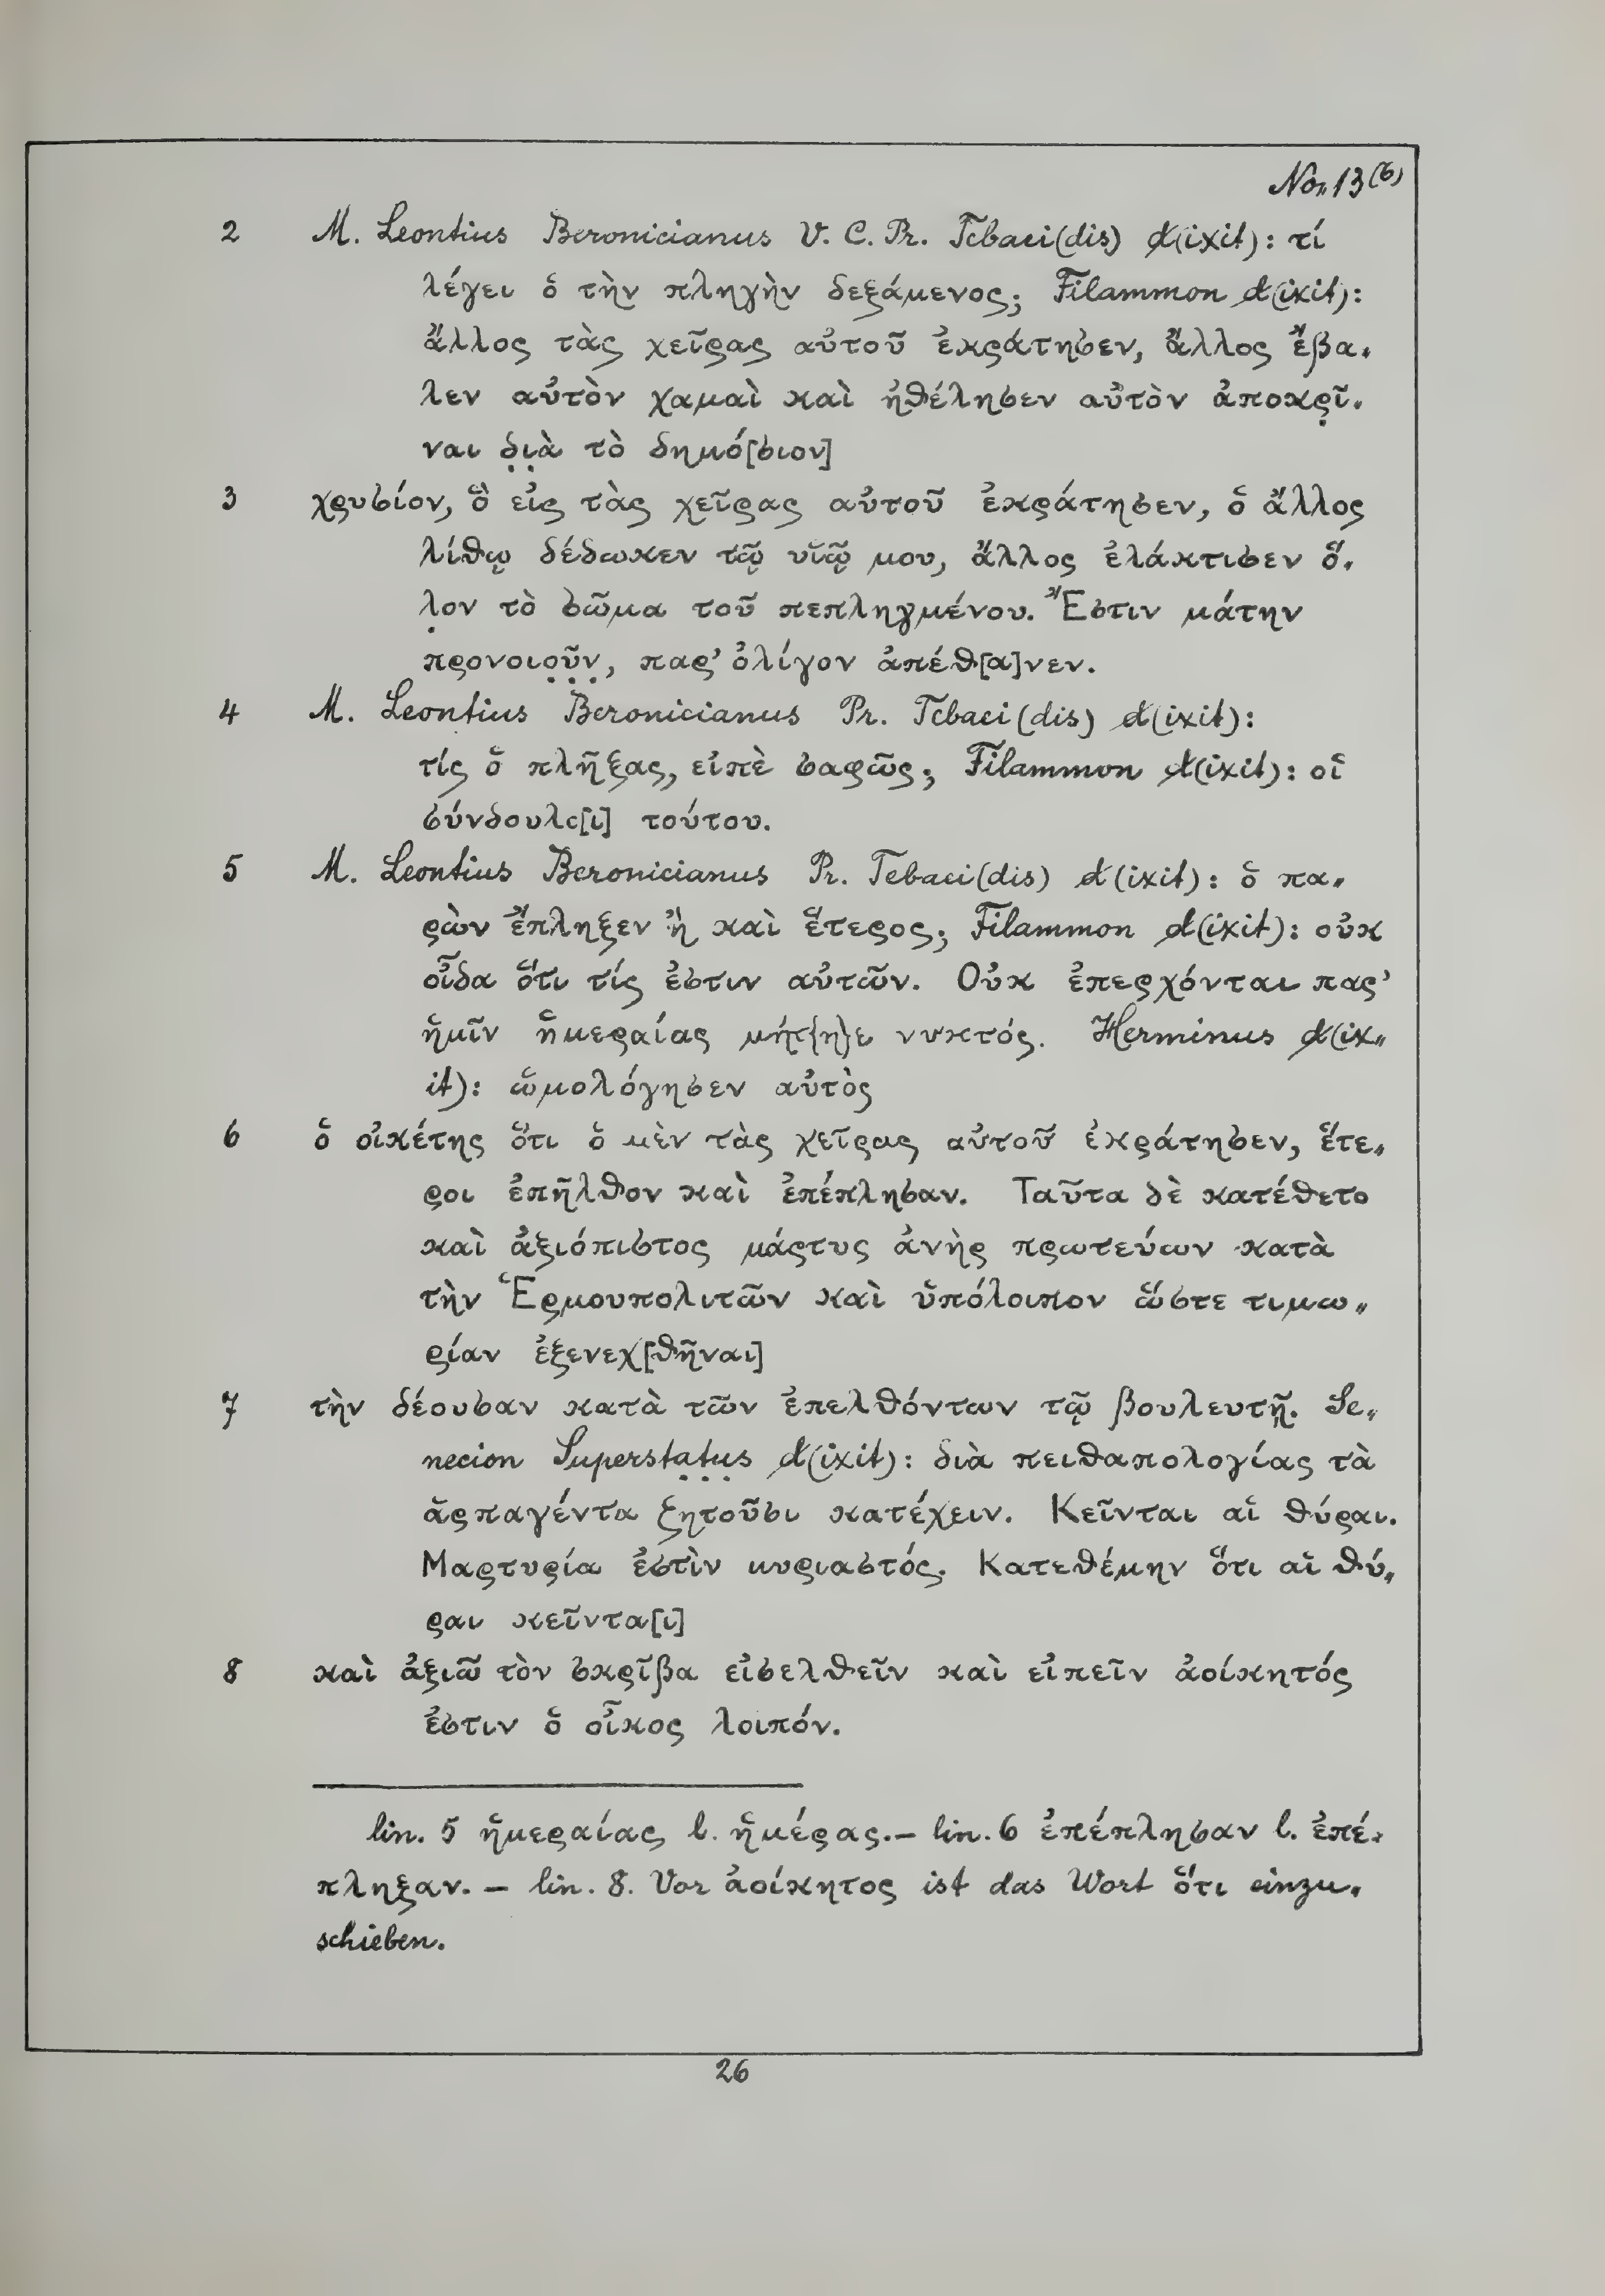 No. 13 (6)
2 M. Leontius Beronicianus V. C. Pr. Tebaei(dis) d(ixit): τί
λέγει ὁ τὴν πληγὴν δεξάμενος; Filammon d(ixit):
ἄλλος τὰς χεῖρας αὐτοῦ ἐκράτησεν, ἄλλος ἔβα-
λεν αὐτὸν χαμαὶ καὶ ἠθέλησεν αὐτὸν ἀποκρ̣ῖ-
ναι δ̣ι̣ὰ τὸ δημό[σιον]
3 χρυσίον, ὃ εἰς τὰς χεῖρας αὐτοῦ ἐκράτησεν, ὁ ἄλλος
λίθῳ δέδωκεν τῷ υἱῷ μου, ἄλλος ἐλάκτισεν ὅ-
λ̣ον τὸ σῶμα τοῦ πεπληγμένου. Ἔστιν μάτην
προνοιο̣ῦ̣ν̣, παρ’ ὀλίγον ἀπέθ[α]νεν.
4 M. Leontius Beronicianus Pr. Tebaei(dis) d(ixit):
τίς ὁ πλῆξας, εἰπὲ σαφῶς; Filammon d(ixit): οἱ
σύνδουλο[ι] τούτου.
5 M. Leontius Beronicianus Pr. Tebaei(dis) d(ixit): ὁ πα-
ρὼν ἔπληξεν ἢ καὶ ἕτερος; Filammon d(ixit): οὐκ
οἶδα ὅτι τίς ἐστιν αὐτῶν. Οὐκ ἐπερχόνται παρ’
ἡμῖν ἡμεραίας μήτ{η}ε νυκτός. Herminus d(ix-
it): ὡμολόγησεν αὐτὸς
6 ὁ οἰκέτης ὅτι ὁ μὲν τὰς χεῖρας αὐτοῦ ἐκράτησεν, ἕτε-
ροι ἐπῆλθον καὶ ἐπέπλησαν. Ταῦτα δὲ κατέθετο
καὶ ἀξιόπιστος μάρτυς ἀνὴρ πρωτεύων κατὰ
τὴν Ἑρμουπολιτῶν καὶ ὑπόλοιπον ὥστε τιμω-
ρίαν ἐξενεχ[θῆναι]
7 τὴν δέουσαν κατὰ τῶν ἐπελθόντων τῷ βουλευτῇ. Se-
necion Supersṭạṭus d(ixit): διὰ πειθαπολογίας τὰ
ἁρπαγέντα ζητοῦσι κατέχειν. Κεῖνται αἱ θύραι.
Μαρτυρία ἐστὶν κυριαστός. Κατεθέμην ὅτι αἱ θύ-
ραι κεῖντα[ι]
8 καὶ ἀξιῶ τὸν σκρῖβα εἰσελθεῖν καὶ εἰπεῖν ἀοίκητός
ἐστιν ὁ οἶκος λοιπόν.
lin. 5 ἡμεραίας l. ἡμέρας.— lin. 6 ἐπέπλησαν l. ἐπέ-
πληξαν. — lin. 8. Vor ἀοίκητος ist das Wort ὅτι einzu-
schieben.
26